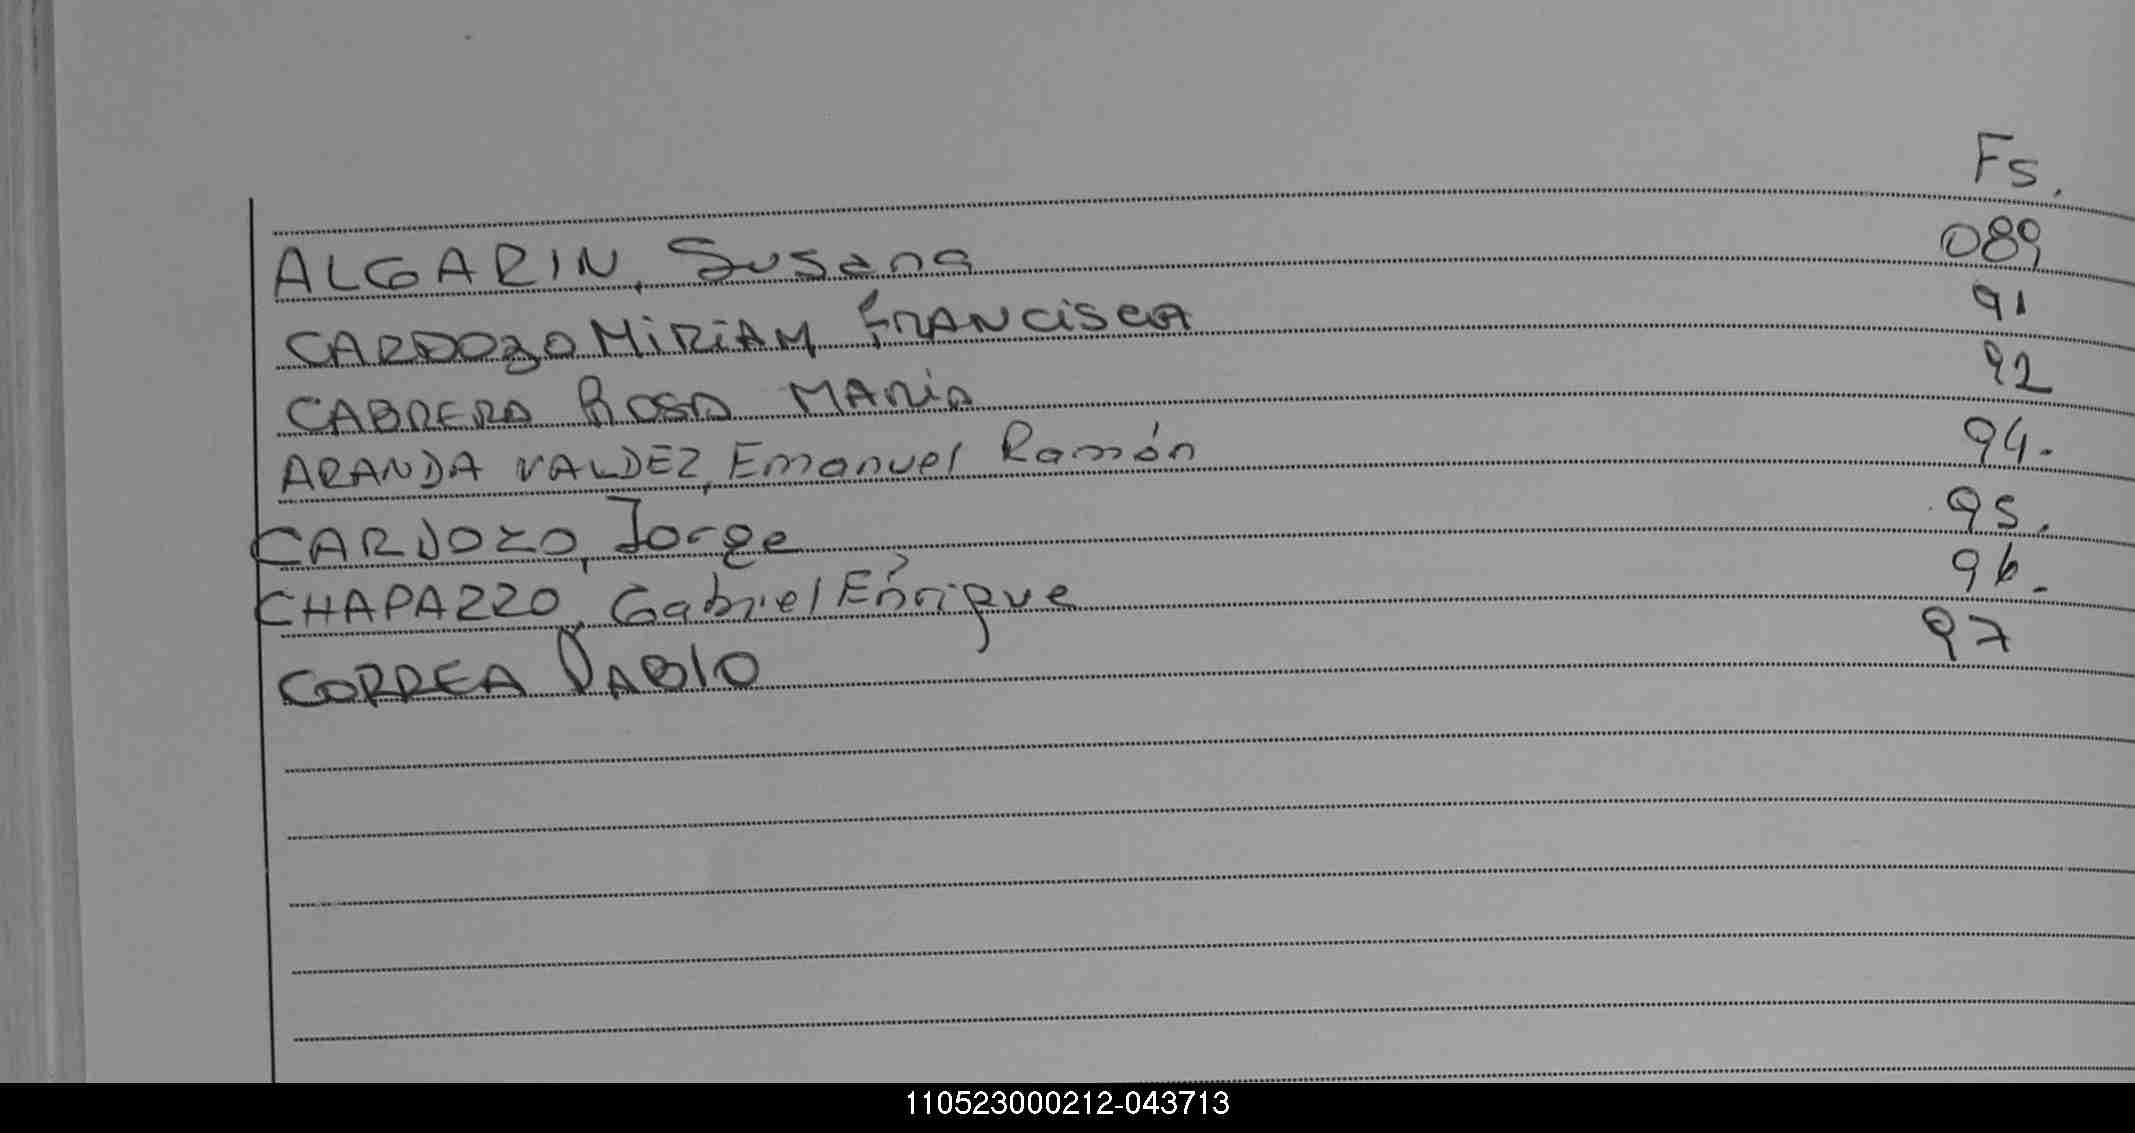 Fs.
ALGARIN, Susana 089
CARDOZO MiRiAM FRANCISCA 91
CABRERA ROSA MARiA 92
ARANDA VALDEZ, Emanuel Ramón 94.
CARDOZO, Jorge 95.
CHAPAZZO, Gabriel Enrique 96.
CORREA PABlO 97
110523000212-043713